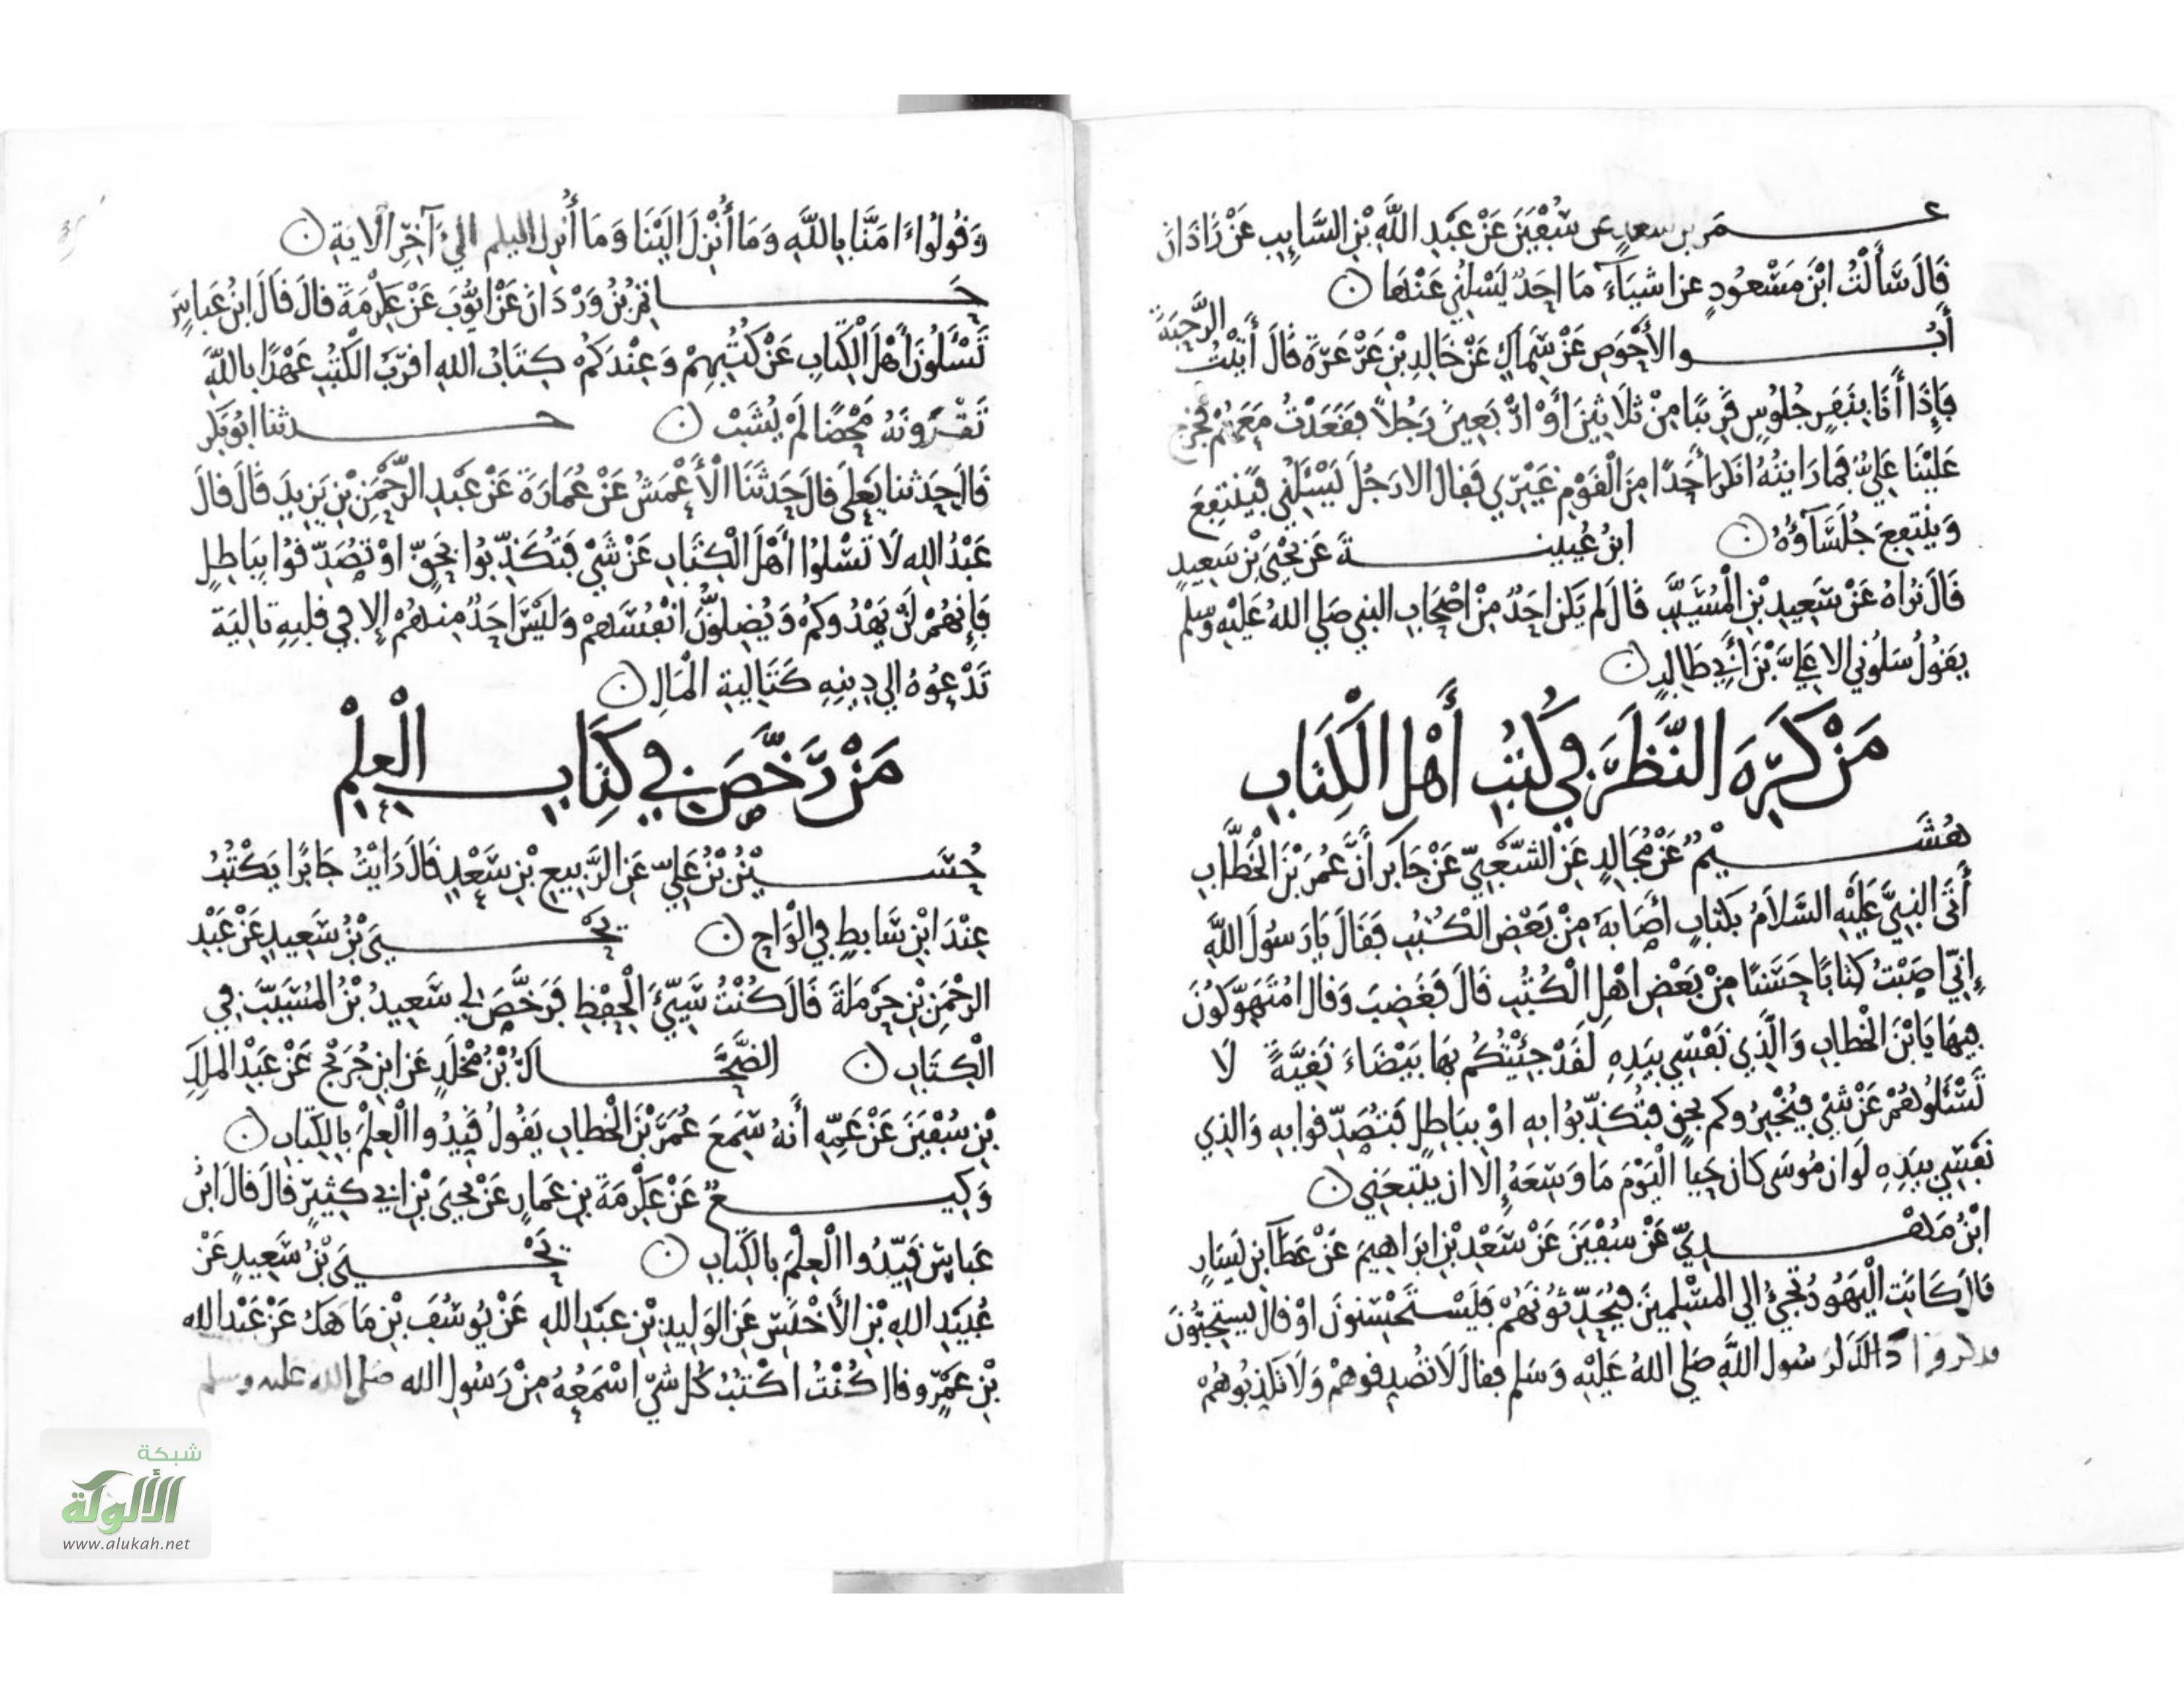 عمر بن سعد عن سُفْيَنَ عَنْ عَبْدِ اللَّهِ بْنِ السَّايِبِ عَنْ زَاذَانَ
قَالَ سَأَلْتُ ابْنَ مَسْعُودٍ عن اشيَآءَ مَا احَدٌ يَسْلُنِي عَنْهَا ن
أَبُو الأَحْوَصِ عَنْ سِمَاكٍ عَنْ خَالِدِ بْنِ عَرْعَرَةَ قَالَ أَتَيْتُ الرَّحبَةَ
فَإِذَا أَنَا بِنَفَرٍ جُلُوسٍ قَرِيبًا مِنْ ثَلاثِينَ أَوْ ارْبَعِينَ رَجُلاً فَقَعَدْتُ مَعَهُمْ فخرج
عَلَيْنَا عَلِيٌّ فَمَا رَايْتُهُ انكَرَ أَحَدًا مِنَ الْقَوْمِ غَيْرِي فَقَال الا رَجُلَ يَسْئَلُنِي فَيَنْتَفِعَ
وَيَنْتَفِعَ جُلَسَآؤُهُ ن ابنُ عُيينةَ عَن يَحْيَى بْنِ سَعِيدٍ
قَالَ نُرَاهُ عَنْ سَعِيدِ بْنِ الْمُسَيَّبِ قَالَ لم يَكن احَدٌ مِنْ اصْحَابِ النبي صَلي اللهُ عَلَيْهِ وسلم
يَقُولُ سَلُونِي الا عَلِيَّ بْنَ أَبِي طَالِبٍ ن
مَنْ كَرِهَ النَّظَرَ فِي كُتُبِ أَهْلِ الْكِتَابِ
هُشَيْمٌ عَنْ مُجَالِدٍ عَنِ الشَّعْبِيِّ عَنْ جَابر أَنَّ عُمَرَ بْنَ الْخَطَّابِ
أَتَى النبِيَّ عَلَيْهِ السَّلاَمُ بكتابٍ أصَابَهُ مِنْ بَعْضِ الْكُتُبِ فَقَالَ يَا رَسُولَ اللَّهِ
إِنِّي اصَبْتُ كتابًا حَسَنًا مِنْ بَعْضِ اهْلِ الْكُتُبِ قَالَ فَغَضِبَ وَقَال امُتَهَوِّكُونَ
فِيهَا يَا بْنَ الْخطابِ وَالَّذِي نَفْسِي بِيَدِهِ لَقَدْ جِئْتُكُم بِهَا بَيْضَاءَ نَقِيَّةً لَا
تَسْئَلُوهُمْ عَنْ شَيْءٍ فَيُخْبِرُوكم بحقٍ فَتُكَذِّبُوا بِهِ اوْ بِبَاطِلٍ فَتُصَدِّقُوا بِهِ وَالذِي
نَفْسِي بِيَدِهِ لَوْ ان مُوسَى كان حَياً الْيَوْمَ مَا وَسِعَهُ إِلا ان يتْبَعَنِي ن
ابْنُ مَهْدِيٍّ عَنْ سُفْيَنَ عَنْ سَعْدِ بْنِ ابرَاهِيمَ عَنْ عَطَآ بن يَسَارٍ
قَال كَانَتِ الْيَهُودُ تَجِيُ الى الْمُسْلِمِينَ فَيُحَدِّثُونَهُمْ فَيَسْتَحْسِنُونَ اوْ قال يستحِبُّونَ
فذكروا ذَالكَ لرَسُول اللَّهِ صَلي اللهُ عَلَيْهِ وَسَلم فقالَ لَا تُصَدِقوهُمْ وَلَا تُكَذِبُوهُمْ
وَقُولُوا ءَامَنَّا بِاللَّهِ وَمَا أُنْزِلَ إِلَيْنَا وَمَا أُنزِل اليكم اليٓ آخِرِ الايَةِ ن
حَاتِمُ بْنُ وَرْدَانَ عَنْ ايُّوبَ عَنْ عِكْرِمَةَ قالَ قَالَ ابْنُ عَباسٍ
تَسْئَلُونَ أَهْلَ الْكِتَابِ عَنْ كُتُبِهِمْ وَعِنْدَكُم كِتَابُ اللهِ اقرَبُ الكُتُبِ عَهْدًا باللَّهِ
تَقْرَءُونَهُ مَحْضًا لَمْ يُشَبْ ن حدثنا ابُو بَكر
قَالَ حَدثنا يَعْلَى قالَ حَدثَنَا الْأَعْمَشُ عَنْ عُمَارَةَ عَنْ عَبْدِ الرَّحْمَنِ بْنِ يَزِيدَ قَالَ قالَ
عَبْدُ اللهِ لَا تَسْلُوا أَهْلَ الْكِتَابِ عَنْ شَيْ فَتُكَذِّبُوا بِحَقٍّ اوْ تُصَدِّقُوا بِبَاطِلٍ
فَإِنهُمْ لَنْ يَهْدُوكُمْ وَيُضِلُّونَ انْفُسَهُمْ وَلَيْسَ احَدٌ مِنهُمْ إِلا فِي قَلبِهِ تَالِيَة
تَدْعُوهُ الى دِينِهِ كَتَالِيَةِ الْمَالِ ن
مَنْ رَخَّصَ فِي كِتَابِ الْعِلْمِ
حُسَيْنُ بْنُ عَلِيّ عَنِ الرَّبِيعِ بْنِ سَعْدٍ قَالَ رَايْتُ جَابرًا يَكْتُبُ
عِنْدَ ابْنِ سَابِطٍ فِي الْوَاحٍ ن يَحْيَى بْنُ سَعِيدٍ عَنْ عَبْدِ
الرحْمَنِ بْنِ حَرْمَلَةَ قَالَ كُنْتُ سَيِّئَ الْحِفْظِ فَرَخَّصَ لِي سَعِيدُ بْنُ المُسَيَّبِ فِي
الْكِتَابِ ن الضَّحَّاكُ بْنُ مَخْلَدٍ عَن ابن جُرَيْجٍ عَنْ عَبْدِ الْمَلِكِ
بْنِ سُفْيَنَ عَنْ عَمِّهِ أَنهُ سَمِعَ عُمَرَ بْنَ الْخَطابِ يَقُولُ قَيِّدُوا الْعِلْمَ بِالكِتَابِ ن
وَكِيعٌ عَنْ عِكْرِمَةَ بنِ عَمَارٍ عَنْ يحيَى بْنِ ابي كَثِيرٍ قالَ قالَ ابْنُ
عَبَاسٍ قَيِّدُوا الْعِلْمَ بالكِتَابِ ن يَحْيَى بْنُ سَعِيدٍ عَنْ
عُبَيْدِ اللهِ بْنِ الأَخْنَسِ عَنِ الْوَلِيدِ بْنِ عَبْدِ اللهِ عَنْ يُوسُفَ بْنِ مَاهَك عَنْ عَبْدِ الله
بْنِ عَمْرٍو قال كُنْتُ اكْتُبُ كُل شَيْ اسْمَعُهُ مِنْ رَسُولِ الله صَلى الله عليه وسلم
شبكة
الألوكة
www.alukah.net